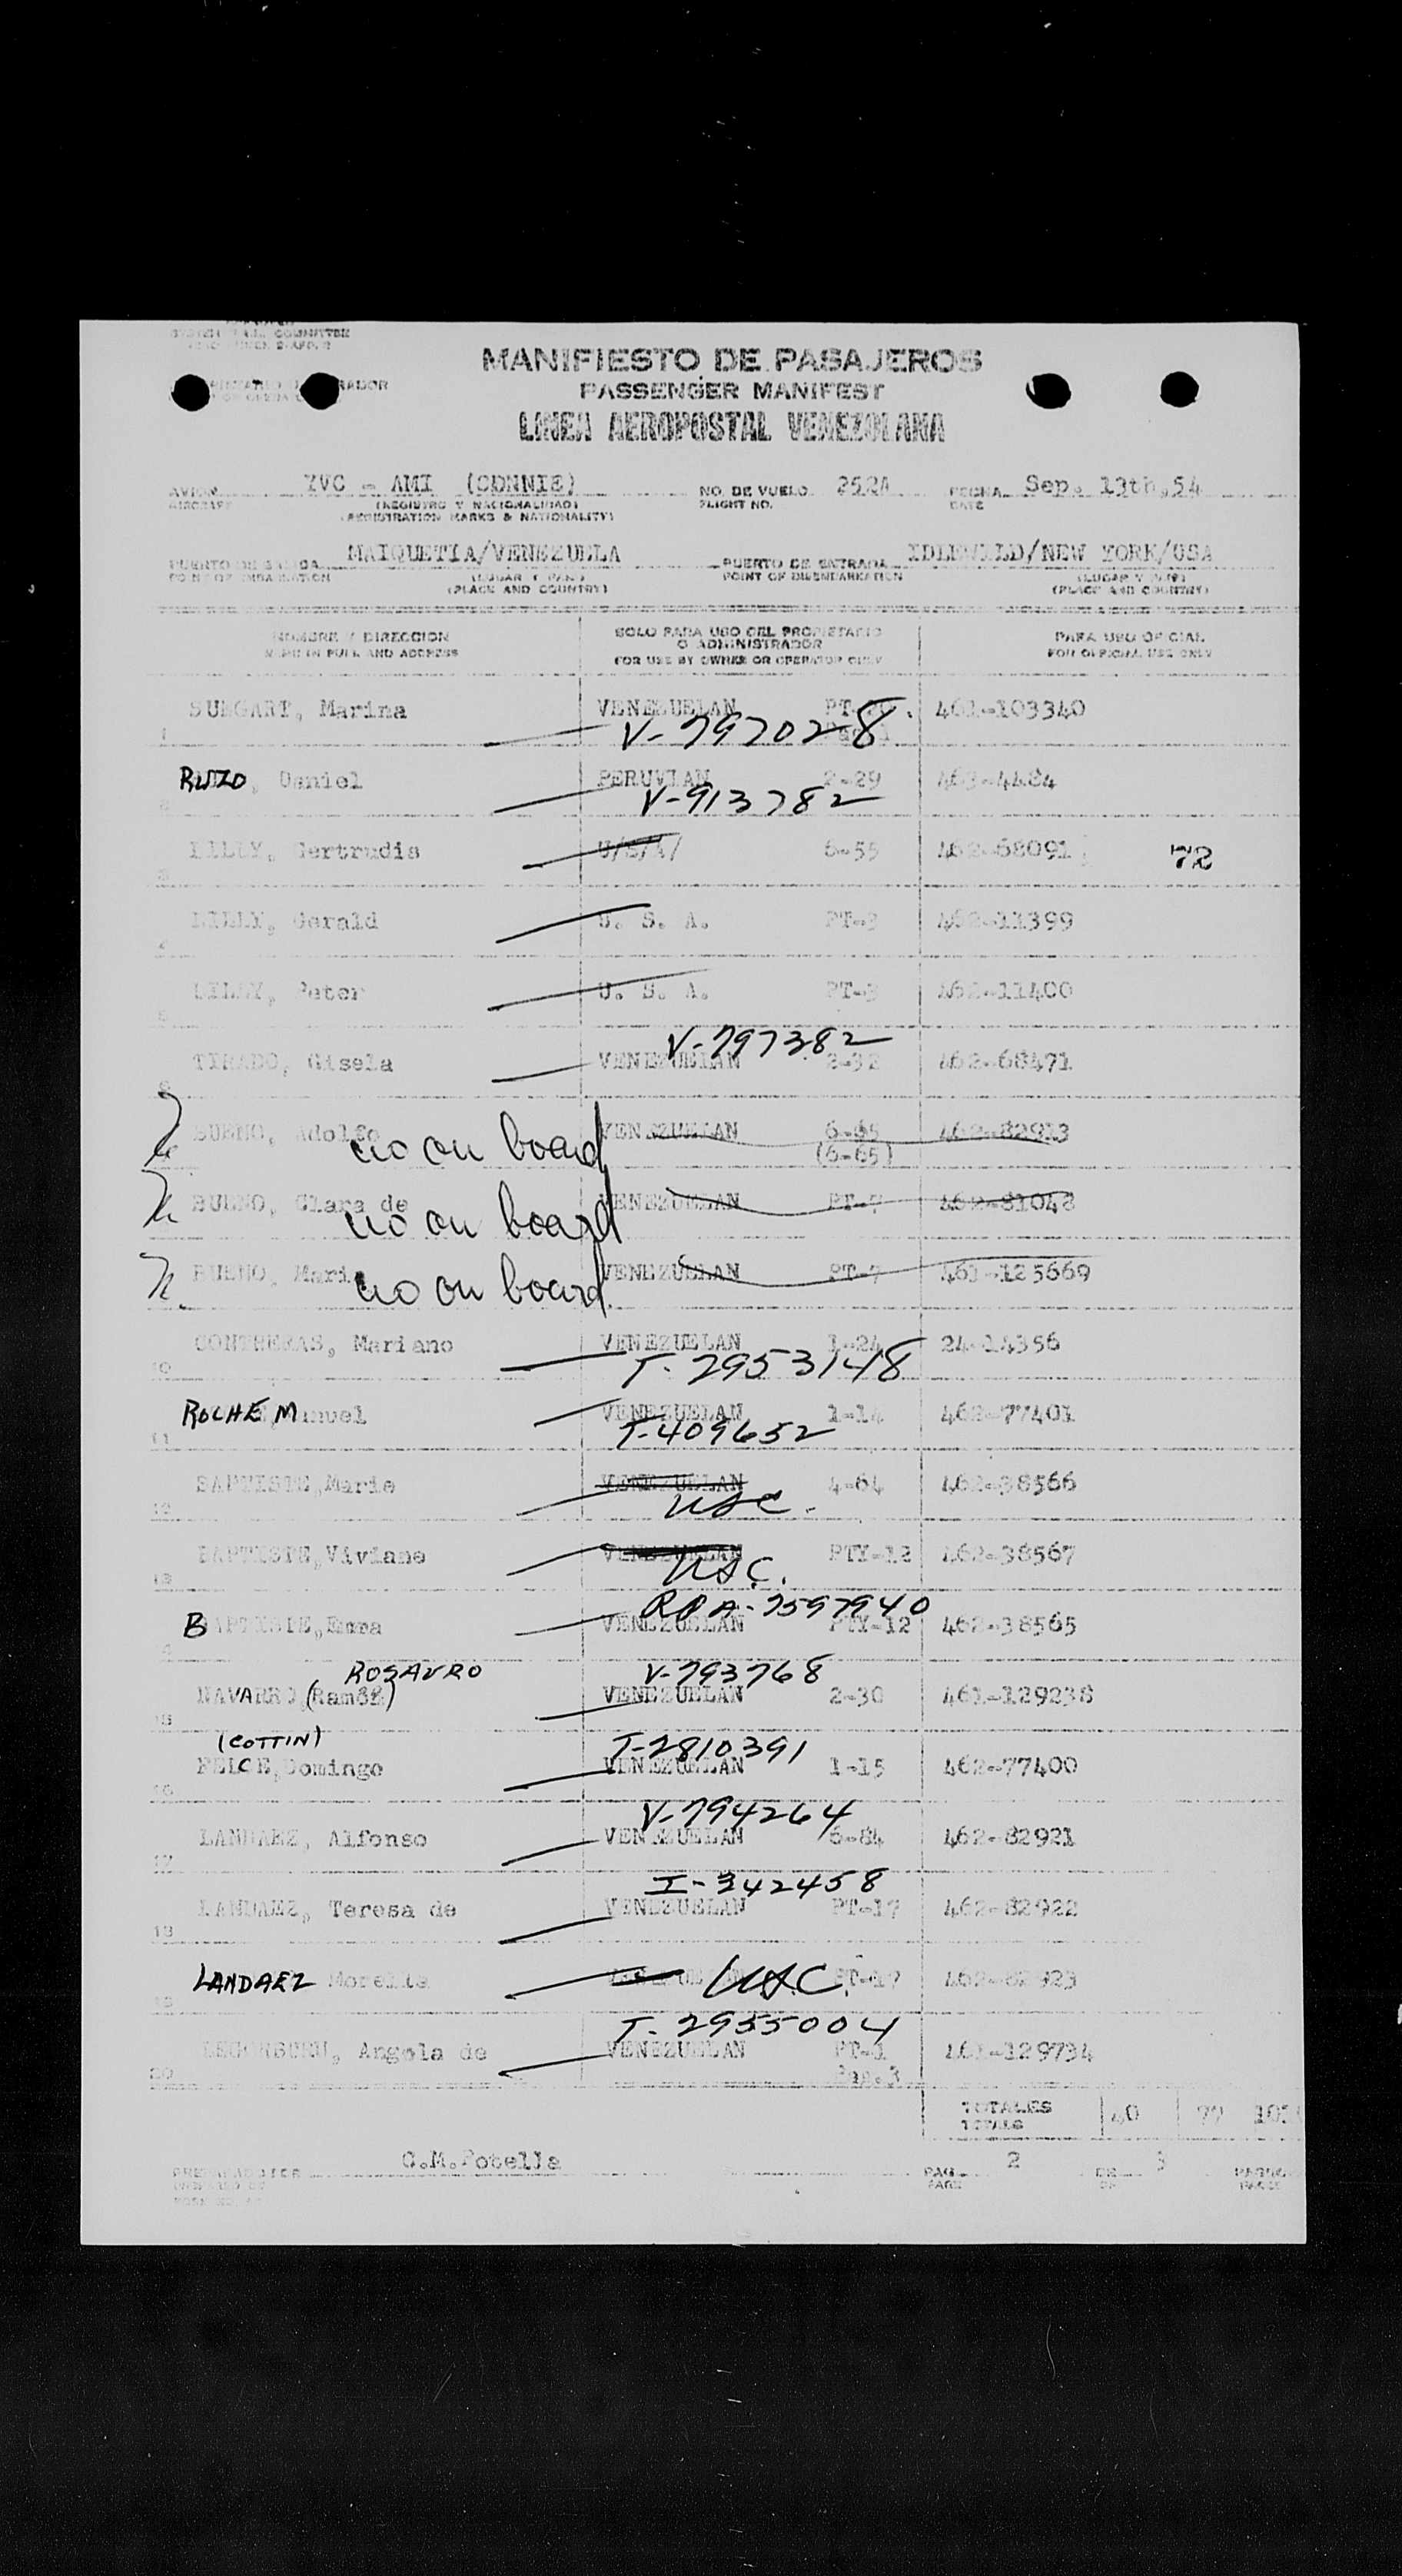 COMMITTEE
MANIFIESTO DE PASAJEROS
PASSENGER MANIFEST
LINEA AEROPOSTAL VENEZOLANA
AVION YVC - AMI (CONNIE) NO. DE VUELO 252A FECHA Sep. 13th,54
AIRCRAFT (REGISTRO Y NACIONALIDAD) FLIGHT NO. DATE
(REGISTRATION MARKS & NATIONALITY)
MAIQUETIA/VENEZUELA PUERTO DE ENTRADA IDLEWILD/NEW YORK/USA
POINT OF EMBARKATION (LUGAR Y PAIS) POINT OF DISEMBARKATION (LUGAR Y PAIS)
(PLACE AND COUNTRY) (PLACE AND COUNTRY)
NOMBRE Y DIRECCION SOLO PARA USO DEL PROPIETARIO O ADMINISTRADOR PARA USO OFICIAL
NAME IN FULL AND ADDRESS FOR USE BY OWNER OR OPERATOR ONLY FOR OFFICIAL USE ONLY
Marina VENEZUELAN 461-103340
1 V-797028
RUZO, Daniel PERUVIAN 2-29 463-4484
2 V-913782
LILLY, Gertrudis U/S/A/ 6-55 462-68091 72
3
LILLY, Gerald U. S. A. PT-3 462-11399
4
LILLY, Peter U. S. A. PT-3 462-11400
5
V-797382
TIRADO, Gisela VENEZUELAN 2-32 462-68471
6
BUENO, Adolfo no on board VENEZUELAN 462-82913
(6-65)
BUENO, Clara de no on board VENEZUELAN PT-7 462-81048
BUENO, Mari no on board VENEZUELAN PT-7 461-125669
CONTRERAS, Mariano VENEZUELAN 1-24 24-14356
10 T-2953148
ROCHE Manuel VENEZUELAN 1-14 462-77401
11 T-409652
BAPTISTE, Marie VENEZUELAN 4-64 462-38566
12 USC.
BAPTISTE, Viviane VENEZUELAN PTY-12 462-38567
13 USC.
RPA-7597940
BAPTISTE, VENEZUELAN PTY-12 462-38565
ROSAURO V-793768
NAVARRO, (Ramón) VENEZUELAN 2-30 461-129238
15
(COTTIN) T-2810391
FELCE, Domingo VENEZUELAN 1-15 462-77400
16
V-794264
LANDAEZ, Alfonso VENEZUELAN 6-84 462-82921
17
I-342458
LANDAEZ, Teresa de VENEZUELAN PT-17 462-82922
18
LANDAEZ Morella USC. PT-17 462-82923
19
T-2955004
Angela de VENEZUELAN PT-1 461-129734
20 Pag.3
TOTALES 40 77
TOTALS
C.M.Potella PAG. 2 DE
PAGE OF